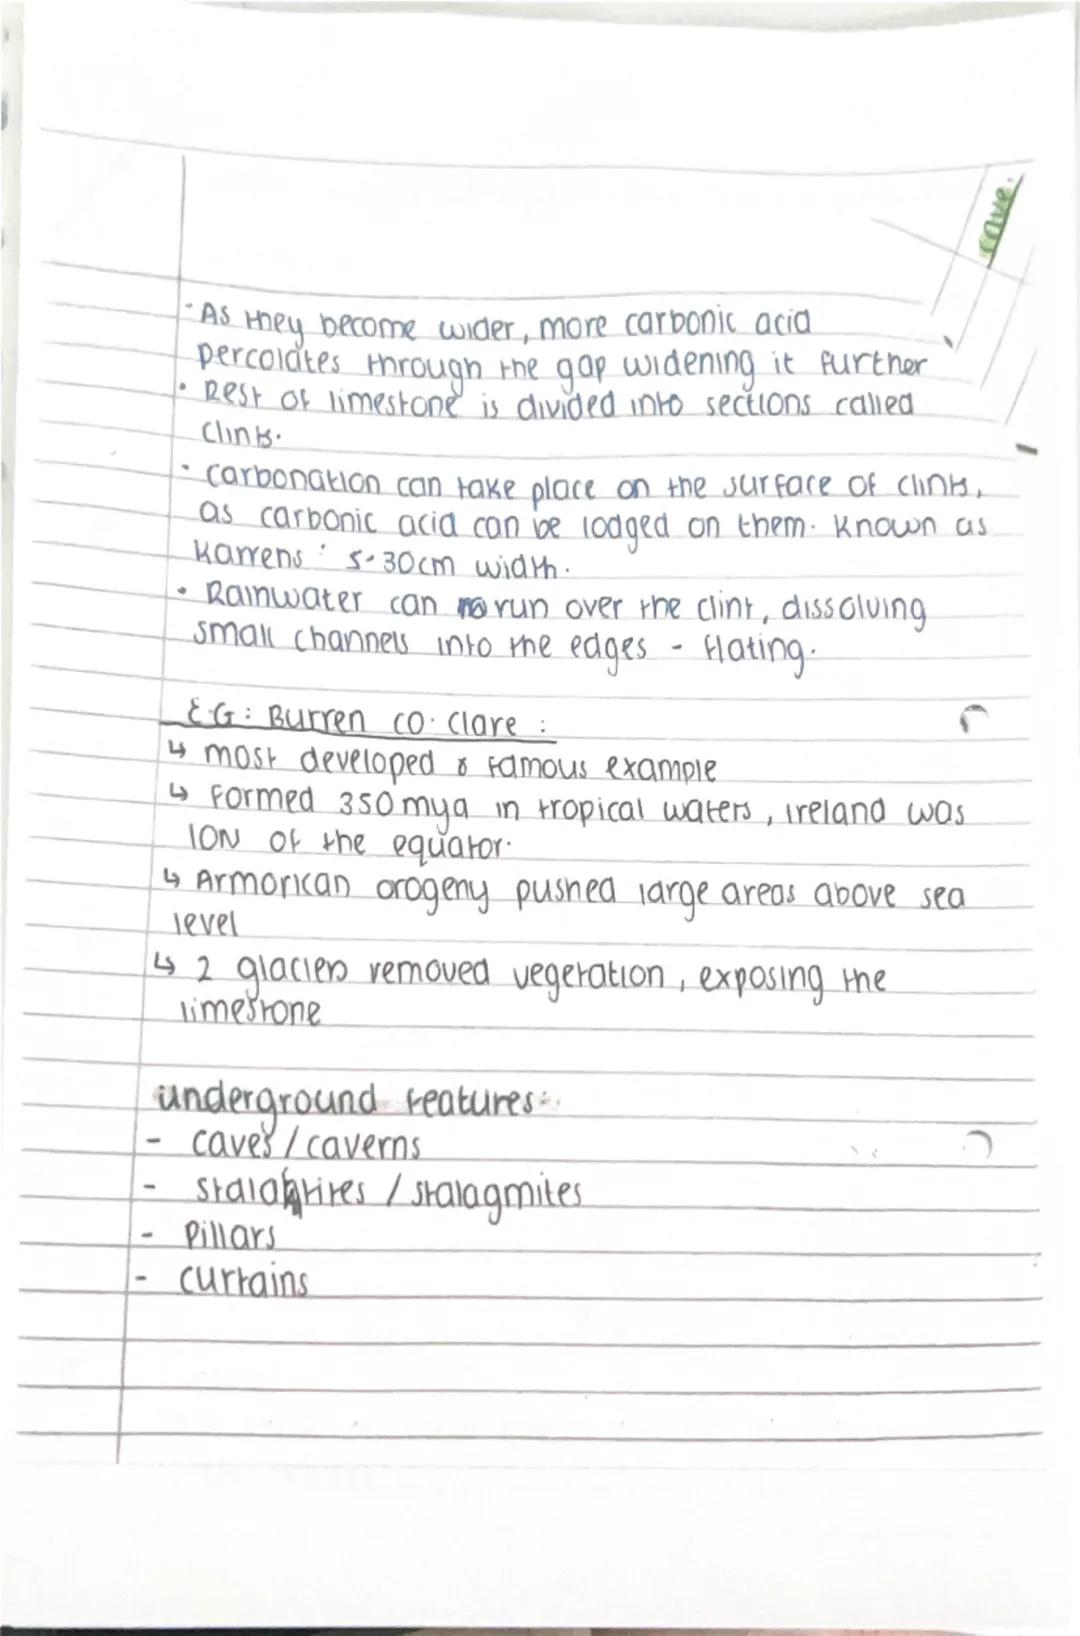 cave.
- As they become wider, more carbonic acid
percolates through the gap widening it further
• Rest of limestone is divided into sections called
Clints.
• Carbonation can take place on the surface of clints,
as carbonic acid can be lodged on them. Known as
Karrens : 5-30cm width.
• Rainwater can run over the clint, dissolving
small channels into the edges - flating.
E.G: Burren co. Clare :
↳ most developed & famous example
↳ Formed 350mya in tropical waters, ireland was
10N of the equator.
↳ Armorican orogeny pushed large areas above sea
level
↳ 2 glaciers removed vegetation, exposing the
limestone
underground features:
- caves / caverns
- / stalagmites
- Pillars
- curtains